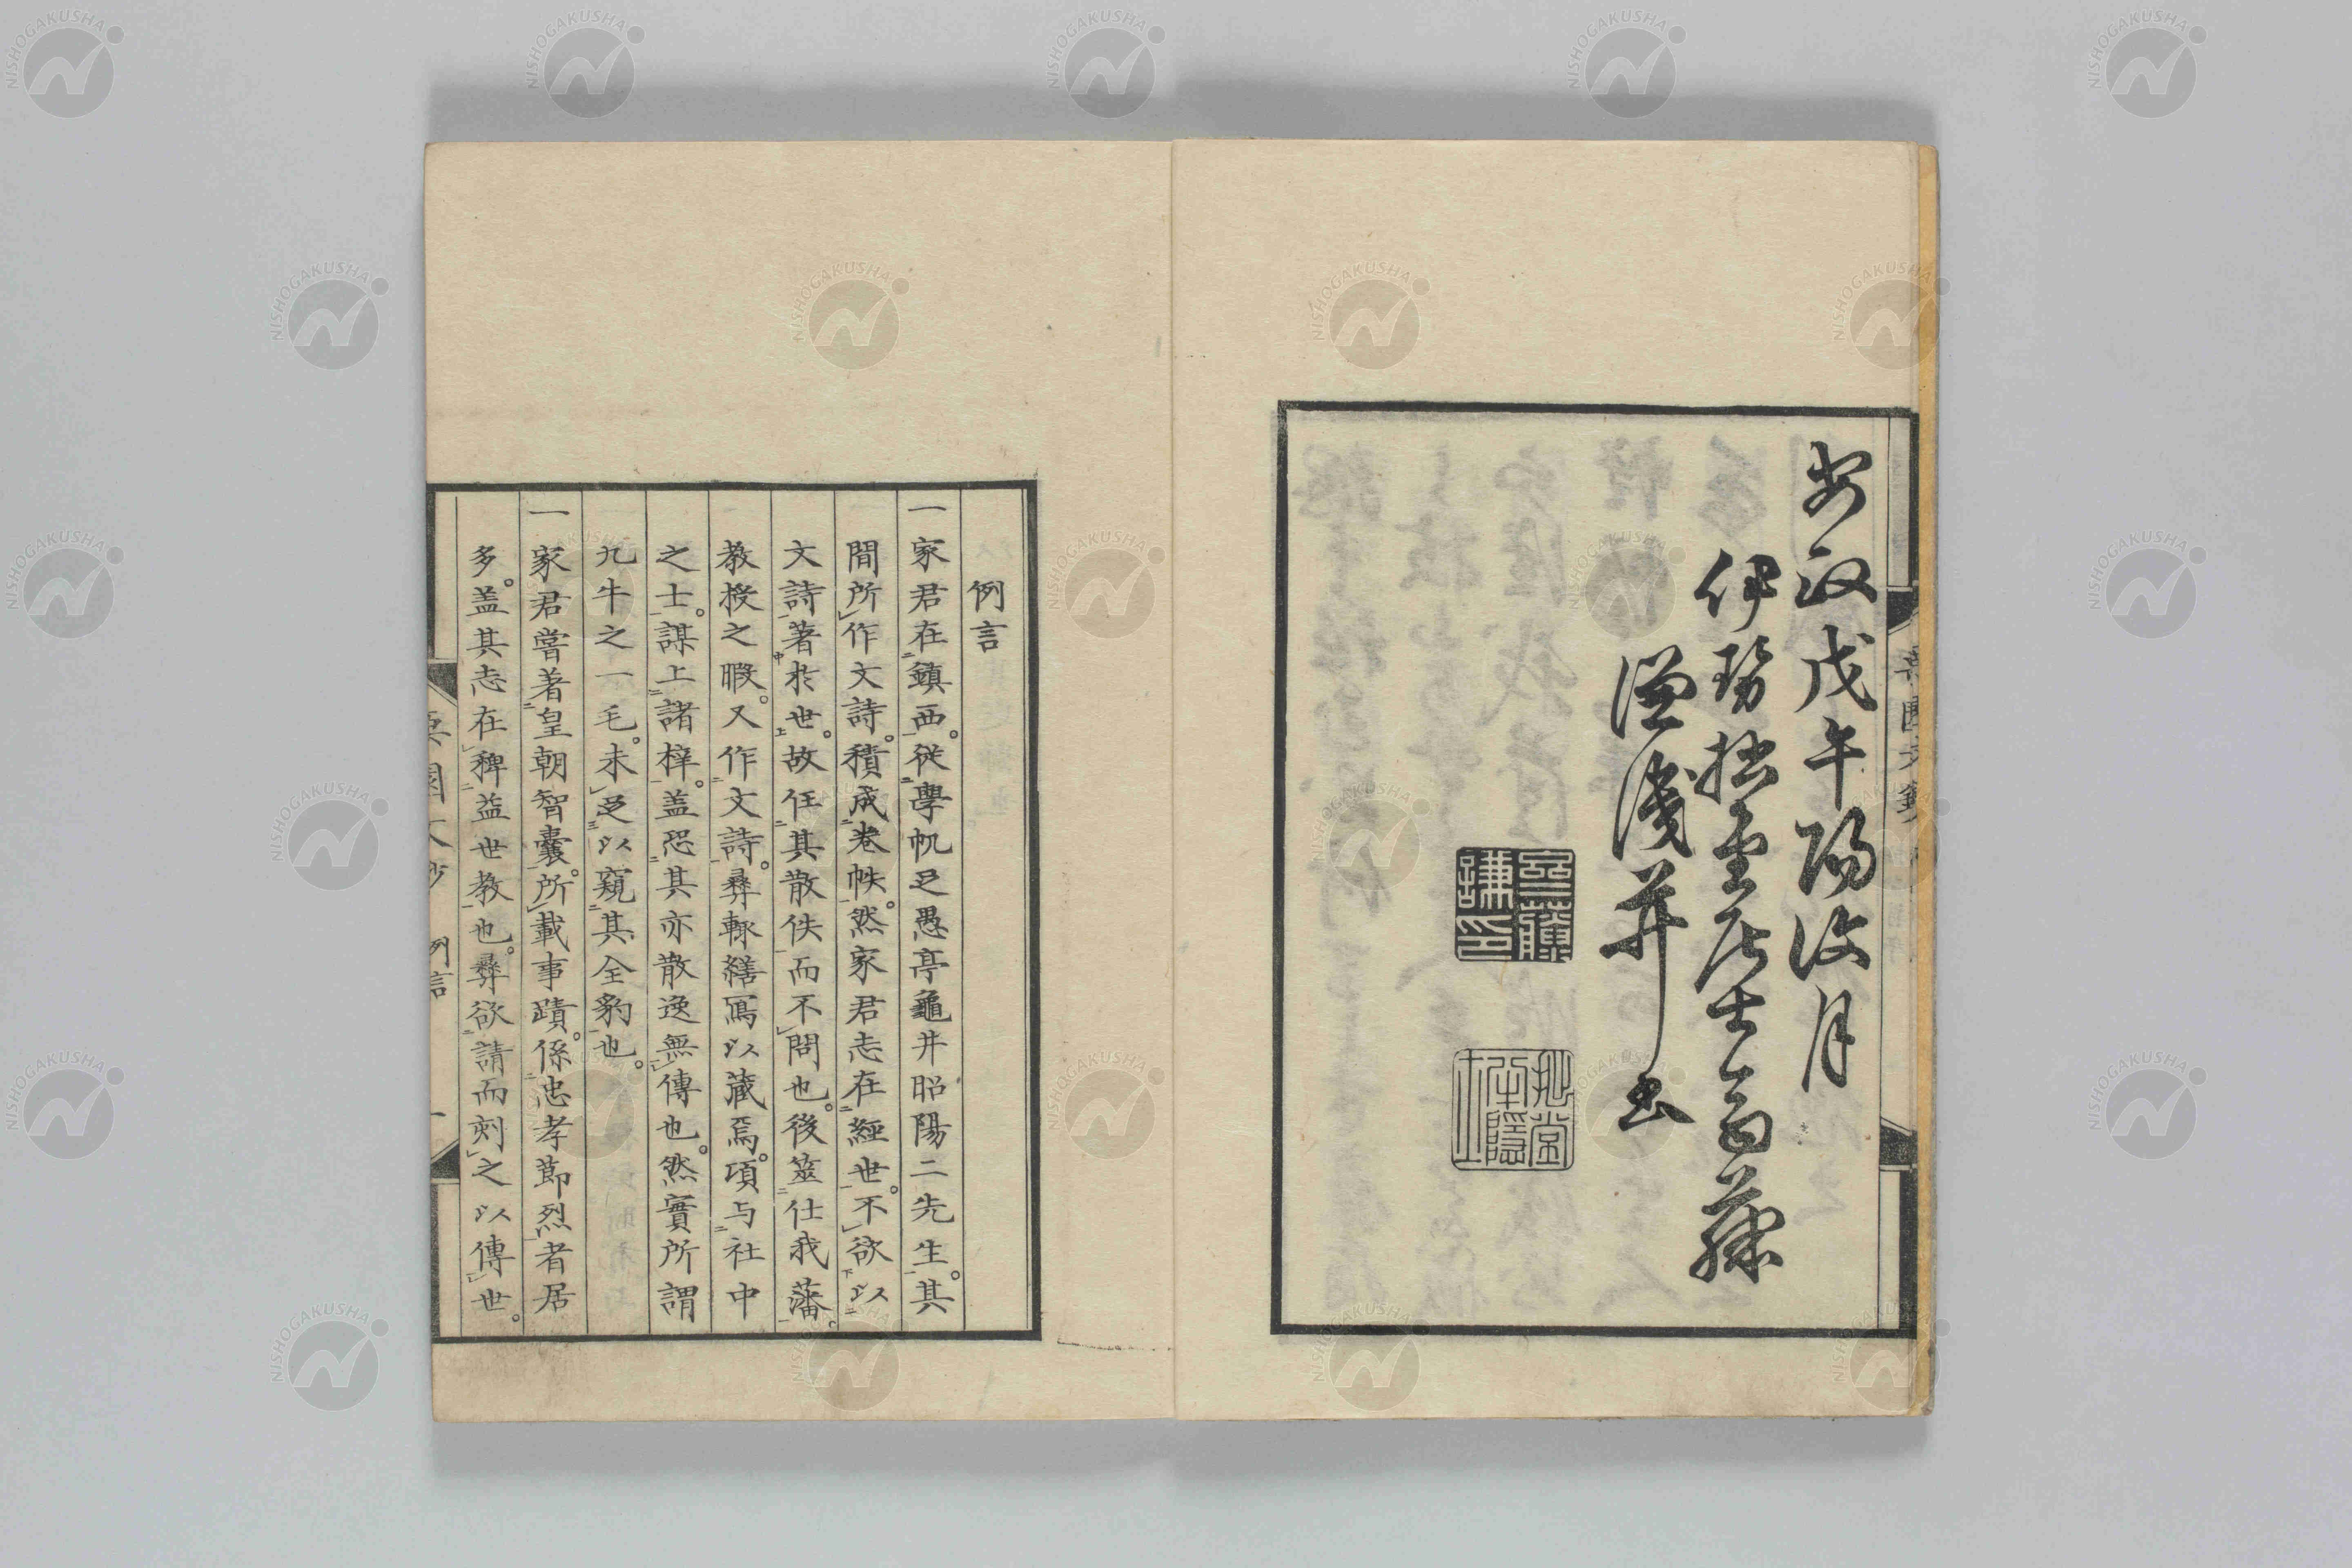 安政戊午陽復月
伊勢拙堂居士齋藤
謙淺草書
齋藤謙印
拙堂半隱士
例言
一家君在鎮西。從學帆足愚亭龜井昭陽二先生。其
間所作文詩。積成卷帙。然家君志在經世。不欲以
文詩著於世。故任其散佚而不問也。後筮仕我藩。
教授之暇。又作文詩。彝輙繕寫以藏焉。頃与社中
之士。謀上諸梓。盖恐其亦散逸無傳也。然實所謂
九牛之一毛。未足以窺其全豹也。
一家君嘗著皇朝智囊。所載事蹟。係忠孝節烈者居
多。盖其志在裨益世教也。彝欲請而刻之以傳世。
例言 一
NISHOGAKUSHA